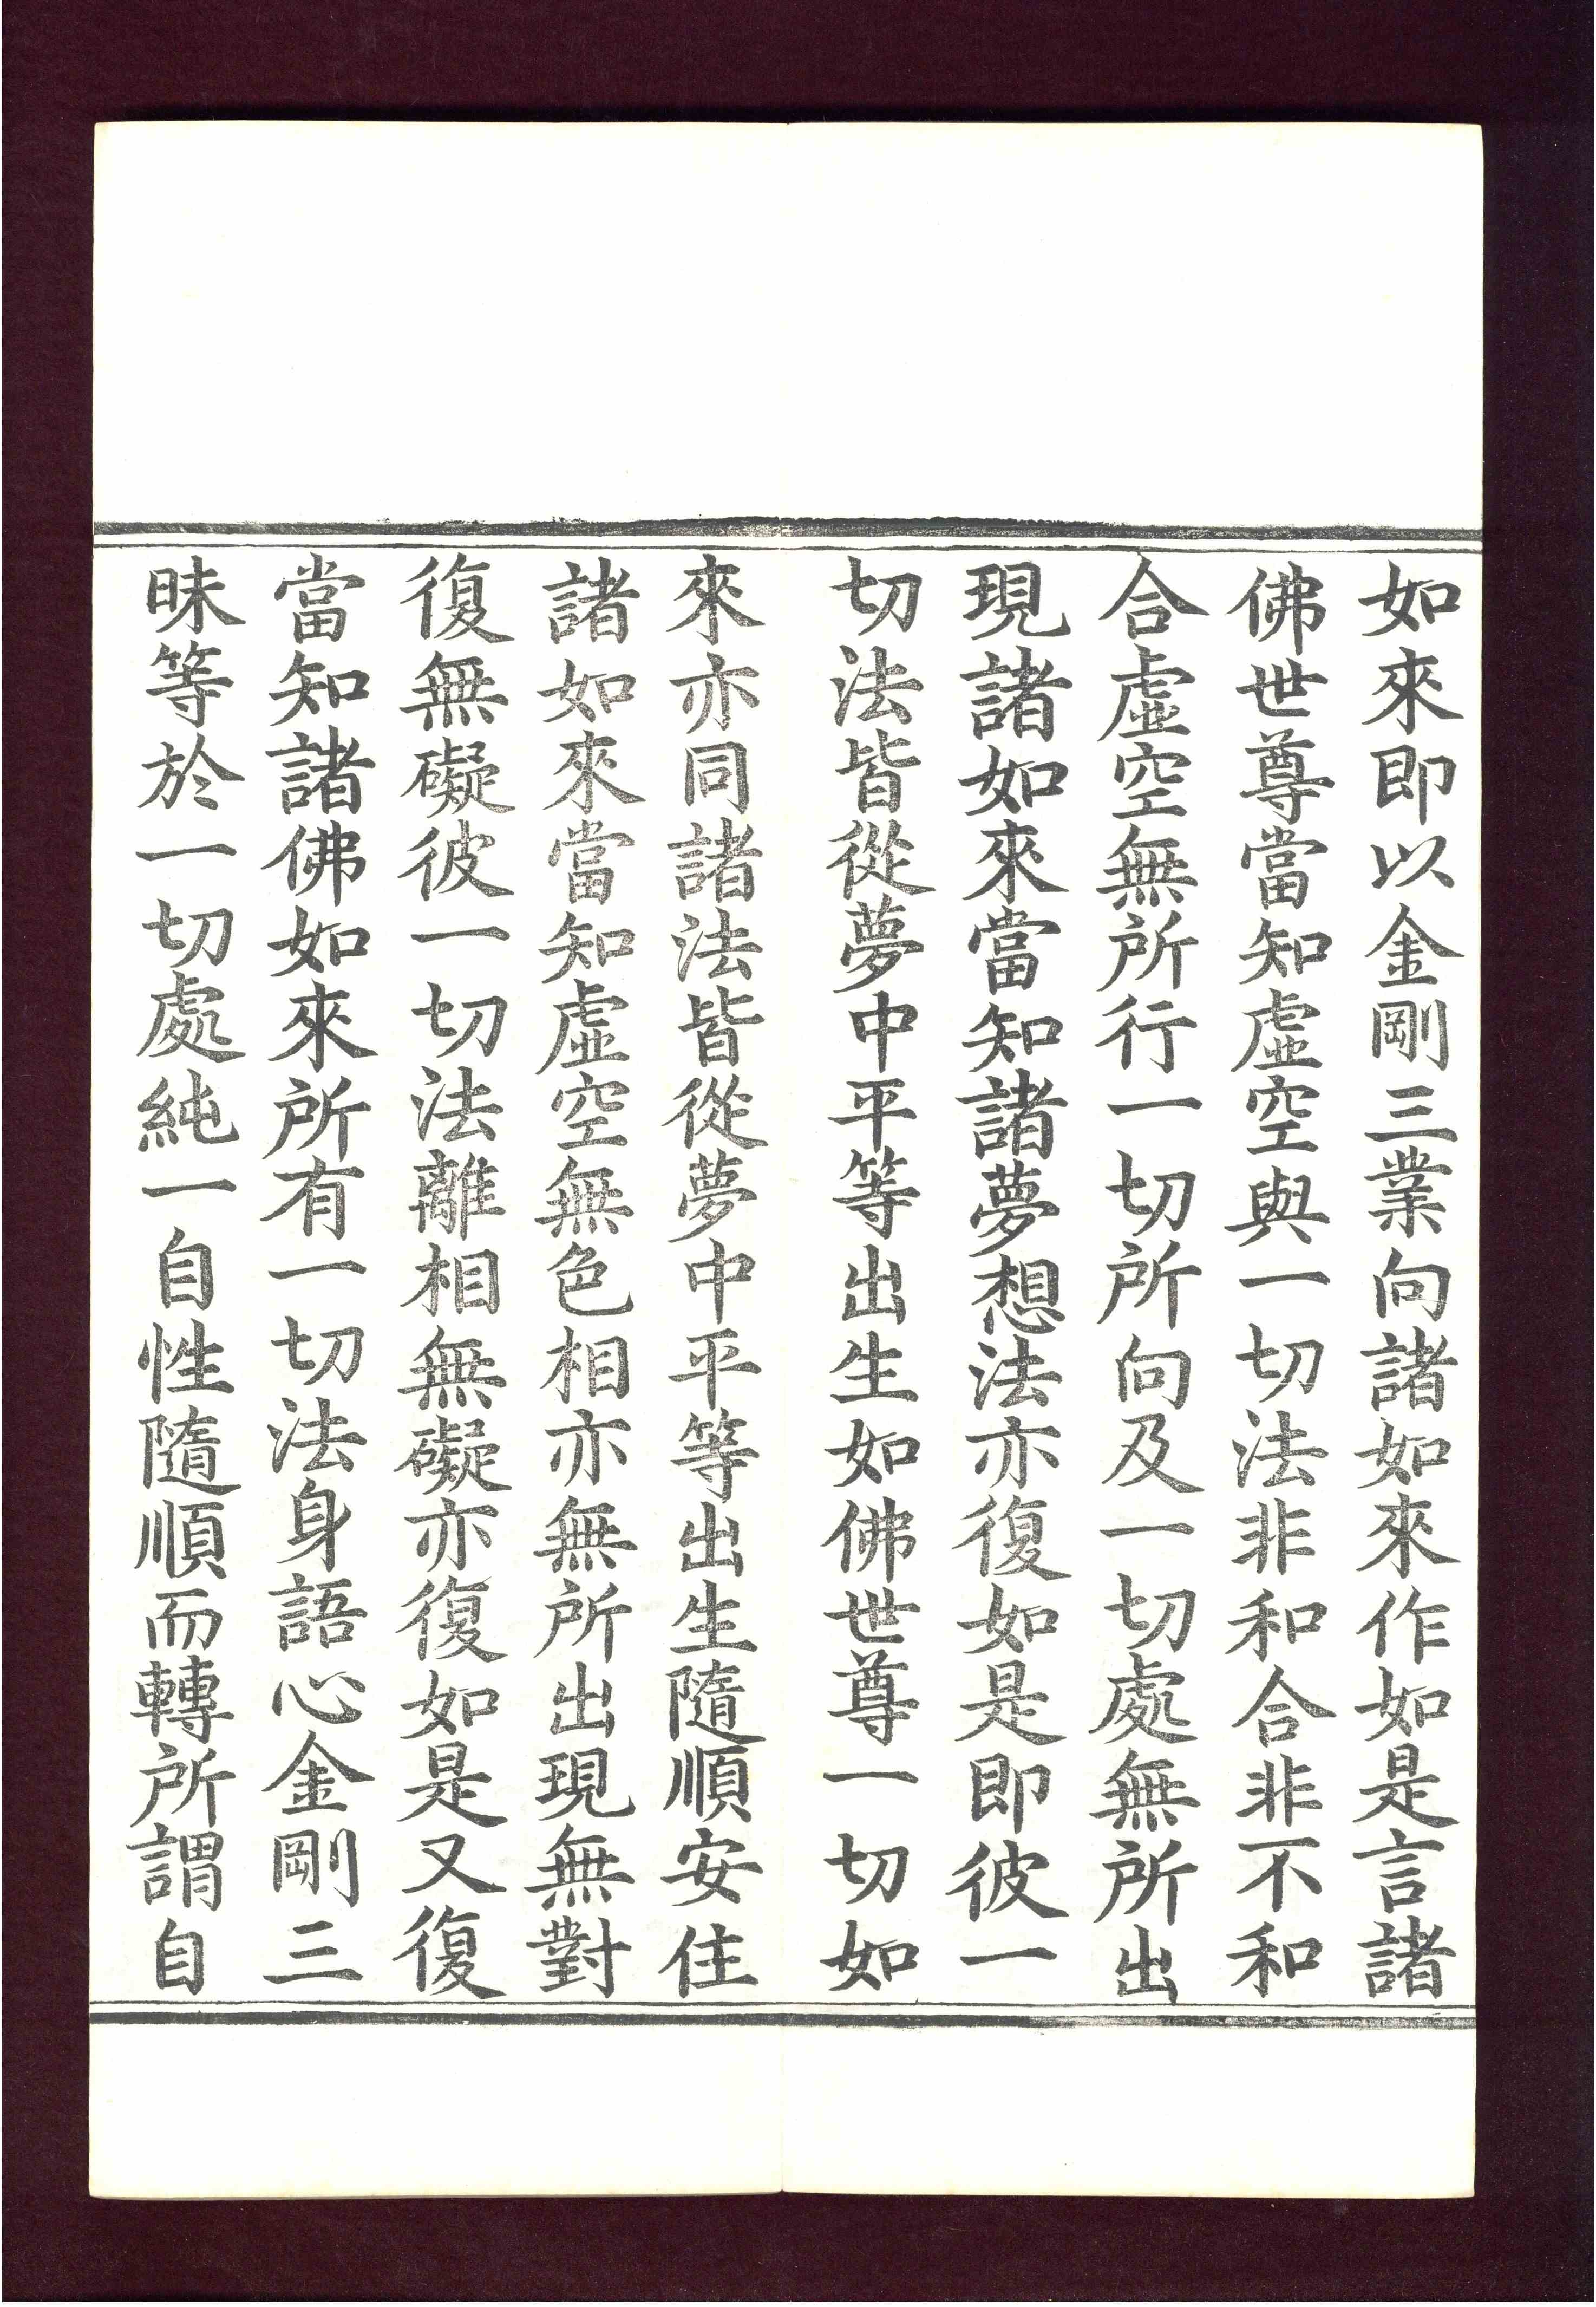 如來即以金剛三業向諸如來作如是言諸
佛世尊當知虛空與一切法非和合非不和
合虛空無所行一切所向及一切處無所出
現諸如來當知諸夢想法亦復如是即彼一
切法皆從夢中平等出生如佛世尊一切如
來亦同諸法皆從夢中平等出生隨順安住
諸如來當知虛空無色相亦無所出現無對
復無礙彼一切法離相無礙亦復如是又復
當知諸佛如來所有一切法身語心金剛三
昧等於一切處純一自性隨順而轉所謂自